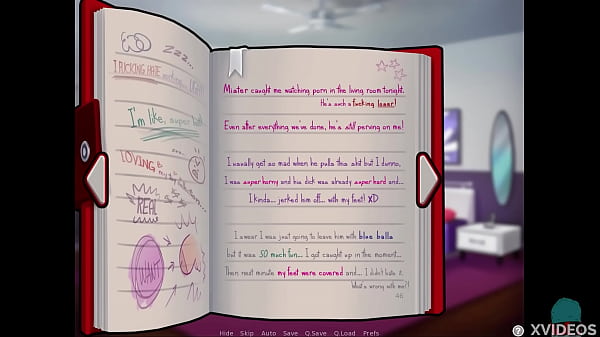 zzz...
I FUCKING HATE
I'm like, super
LOVING
REAL
WANT
Mister caught me watching porn in the living room tonight.
He's such a fucking loser!
Even after everything we've done, he's still perving on me!
I usually get so mad when he pulls this shit but I dunno,
I was super horny and his dick was already super hard and...
I kinda... jerked him off... with my feet! XD
I swear I was just going to leave him with blue balls
but it was SO much fun... I got caught up in the moment...
Then next minute my feet were covered and... I didn't hate it.
What's wrong with me?!
46
Hide Skip Auto Save Q.Save Q.Load Prefs
XVIDEOS